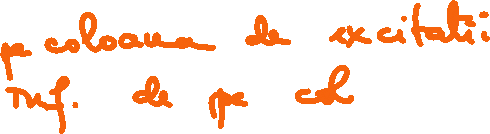 pe coloana de excitatii
inf. de pe col